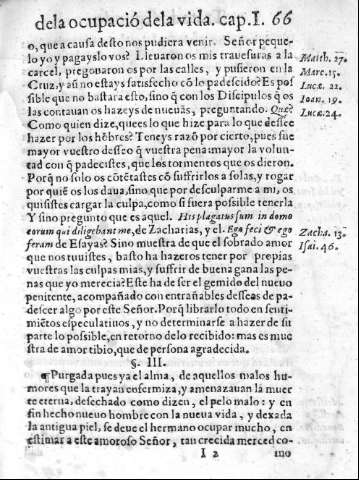 dela ocupació dela vida. cap. I. 66
o, que a causa desto nos pudiera venir. Señor peque-
lo yo y pagays lo vos? Lleuaron os mis trauesuras a la
carcel, pregonaron os por las calles, y pusieron en la
Cruz, y asi no estays satisfecho cō lo padescido? Es po
sible que no bastara esto, sino q̄ con los Discipulos q̄ os
las contauan os hazeys de nueuas, preguntando. Quę?
Como quien dize, q̄ es lo que hize para lo que desee
hazer por los hōbres? Teneys razō por cierto, pues fue
mayor vuestro desseo q̄ vuestra pena: mayor la volun-
tad con q̄ padecistes, que los tormentos que os dieron.
Porq̄ no solo os cōtētastes cō suffrirlos a solas, y rogar
por quiē os los daua, sino que por desculparme a mi, os
quisistes cargar la culpa, como si fuera possible tenerla
Y sino pregunto que es aquel. His plagatus sum in domo
eorum qui diligebant me, de Zacharias, y el. Ego feci & ego
feram de Esayas? Sino muestra de que el sobrado amor
que nos tuuistes, basto ha hazeros tener por propias
vuestras las culpas mias, y suffrir de buena gana las pe-
nas que yo merecia? Este ha de ser el gemido del nueuo
penitente, acompañado con entrañables desseas de pa-
descer algo por este Señor. Porq̄ librarlo todo en senti-
miētos especulatiuos, y no determinarse a hazer de su
parte lo possible, en retorno delo recibido: mas es mue
stra de amor tibio, que de persona agradecida.
§. III.
¶ Purgada pues ya el alma, de aquellos malos hu-
mores que la trayan enfermiza, y amenazauan la muer
te eterna, desechado como dizen, el pelo malo: y en
fin hecho nueuo hombre con la nueua vida, y dexada
la antigua piel, se deue el hermano ocupar mucho, en
estimar a este amoroso Señor, tan crecida merced co-
I 2 mo
Matth. 27.
Marc. 15.
Lucæ. 22.
Ioan. 19.
Lucæ. 24.
Zacha. 13.
Isai. 46.